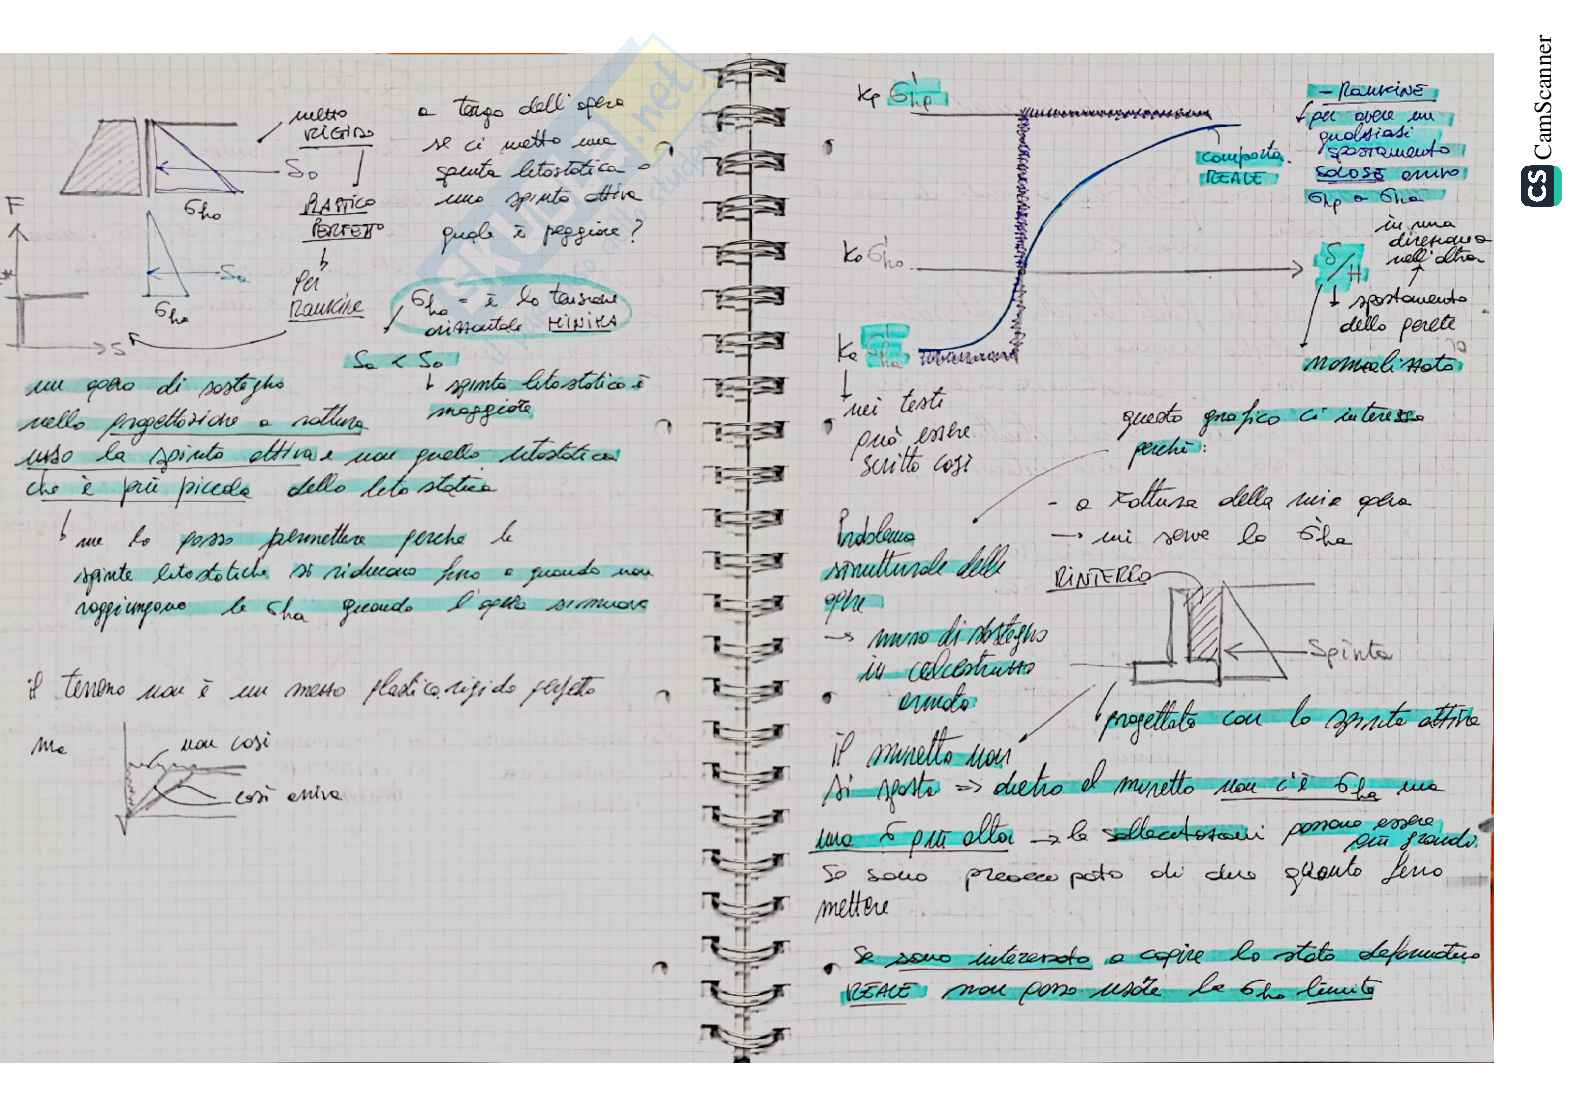 mezzo
RIGIDO
PLASTICO
PERFETTO
per
Rankine
a tergo dell'opera
se ci metto una
spinta litostatica o
una spinta attiva
quale è peggiore?
S₀
σh₀
F
Sa
σha
S
σha = è la tensione
orizzontale MINIMA
Sa < S₀
↓ spinta litostatica è
maggiore
un'opera di sostegno
nella progettazione a rottura
uso la spinta attiva e non quella litostatica
che è più piccola della litostatica
me lo posso permettere perché le
spinte litostatiche si riducono fino a quando non
raggiungono le σha quando l'opera si muove
il terreno non è un mezzo plastico, rigido perfetto
ma
non così
così
Kp σ'hp
comporta.
REALE
- RANKINE
per avere un
qualsiasi
spostamento
σhp o σha
in una
direzione o
nell'altra
K₀ σh₀
δ/H
↓ spostamento
della parete
normalizzato
Ka σ'ha
nei testi
può essere
scritto così
questo grafico ci interessa
perché:
- a rottura della mia opera
→ mi serve la σ'ha
Problema
strutturale delle
opere
→ muro di sostegno
in calcestruzzo
armato
RINTERRO
Spinta
progettato con la spinta attiva
il muretto non
si sposta => dietro il muretto non c'è σha ma
una σ più alta → le sollecitazioni possono essere
più grandi
Se sono preoccupato di dire quanto ferro
mettere
Se sono interessato a capire lo stato deformativo
REALE non posso usare le σha limite
SKUOLA.net
CS CamScanner